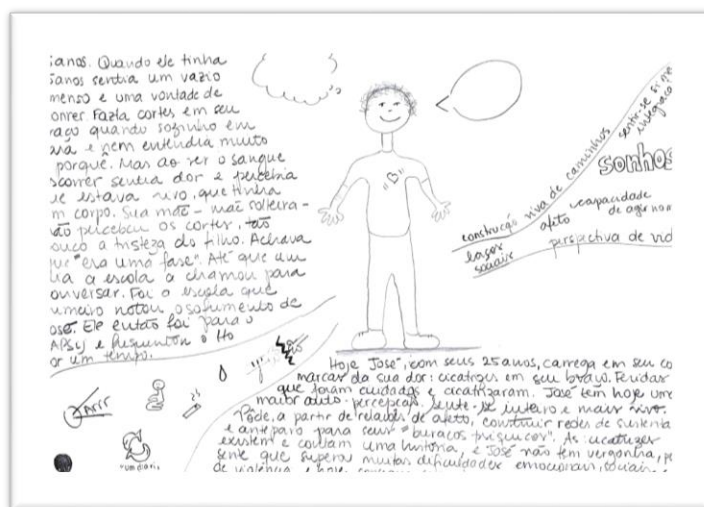 anos. Quando ele tinha
anos sentia um vazio
menso e uma vontade de
orrer. Fazia cortes em seu
aço quando sozinho em
e nem entendia muito
porquê. Mas ao ver o sangue
scorrer sentia dor e percebia
e estava vivo, que tinha
m corpo. Sua mãe - mãe solteira -
ão percebeu os cortes, tão
ouco a tristeza do filho. Achava
ue "era uma fase". Até que um
ia a escola a chamou para
onversar. Foi a escola que
imeiro notou o sofrimento de
osé. Ele então foi para o
APSij e frequentou o
or um tempo.
"B"
sentir-se
integrado
sonhos
construção viva de caminhos
afeto capacidade
de agir no
laços
sociais
perspectiva de vid
Hoje "José", com seus 25 anos, carrega em seu co
marcas da sua dor: cicatrizes em seu braço. Feridas
que foram cuidadas e cicatrizaram. José tem hoje uma
maior auto-percepção, sente-se inteiro e mais vivo.
Pôde, a partir de relações de afeto, construir redes de sustenta
e anteparo para seus "buracos psíquicos". As cicatrizes
existem e contam uma história, e José não tem vergonha, p
sente que superou muitas dificuldades emocionais, sociais,
de violência e hoje